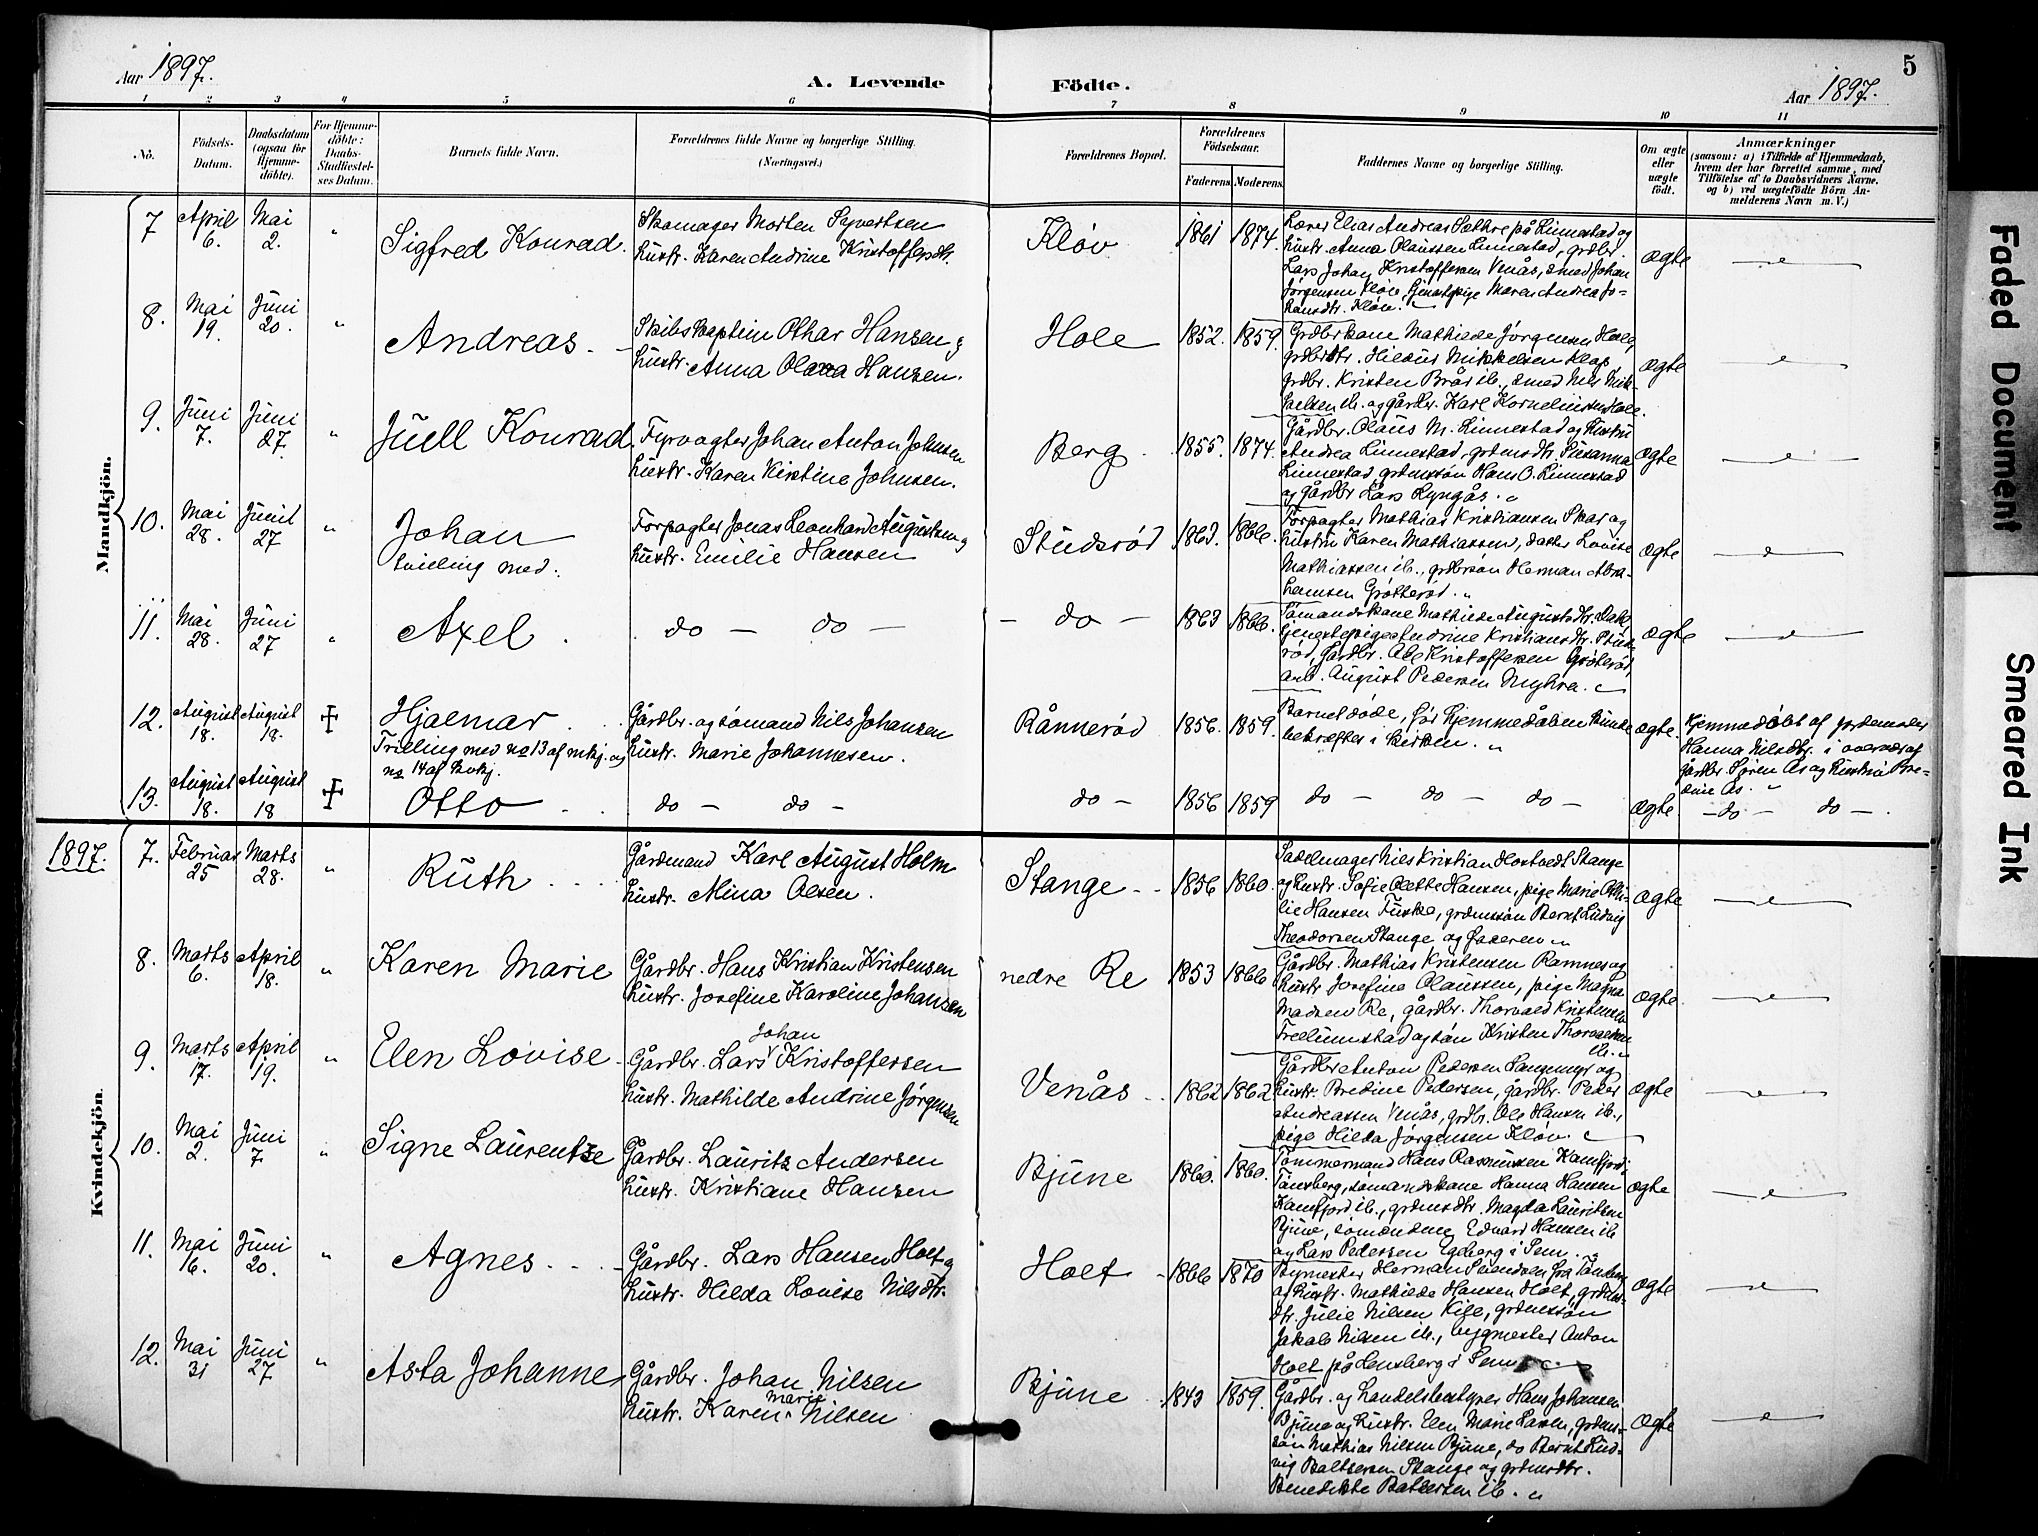 Aar 1897.
A. Levende Födte.
Aar 1897.
5
1 2 3 4 5 6 7 8 9 10 11
No.
Födsels-Datum.
Daabsdatum (ogsaa for Hjemme-döbte).
For Hjemme-döbte: Daabs-Stadfæstel-ses Datum.
Barnets fulde Navn.
Forældrenes fulde Navne og borgerlige Stilling. (Næringsvei.)
Forældrenes Bopæl.
Forældrenes Födselsaar.
Faderens.
Moderens.
Faddernes Navne og borgerlige Stilling.
Om ægte eller uægte födt.
Anmærkninger
(saasom: a) i Tilfælde af Hjemmedaab,
hvem der har forrettet samme, med
Tilföielse af to Daabsvidners Navne,
og b) ved uægtefödte Börn An-
melderens Navn m. V.)
Mandkjön.
7 April 6. Mai 2. " Sigfred Konrad.
Skomager Morten Syvertsen
hustr. Karen Andrine Kristoffersdtr.
Kløv 1861 1874.
Lærer Elias Andreas Sæthre på Linnestad og
hustr. Anna Olaussen Linnestad, grdbr.
Lars Johan Kristoffersen Venås, smed Johan
Jørgensen Kløv, tjenestpige Maren Andrea Jo-
hansdtr. Kløv.
ægte
8. Mai 19. Juni 20. " Andreas.
Skibskaptein Othar Hansen og
hustr. Anna Olava Hansen.
Hole 1852. 1859.
Grdbrkone Mathilde Jørgensen Hole,
grdbr. Kristen Brår ib., smed Nils Mik-
kelsen ib. og gårdbr. Karl Korneliussen Hole.
ægte
9. Juni 7. Juni 27. " Juell Konrad
Fyrvogter Johan Anton Johnsen
hustr. Karen Kirstine Johnsen.
Berg 1855. 1874.
Gårdbr. Olaus M. Linnestad og hustru
Andrea Linnestad, grdmsdtr. Susanna
Linnestad, grdmssøn Hans O. Linnestad
og gårdbr. Lars Lyngås. "
ægte
10. Mai 28. Juni 27 " Johan
tvilling med:
Forpagter Jonas Leonhard Augustsen og
hustr. Emilie Hansen
Studsrød 1863. 1866.
Forpagter Mathias Kristiansen Skar og
hustru Karen Mathiassen, datter Lovise
Mathiassen ib., grdbrsøn Herman Abra-
hamsen Grøtterød. "
ægte
11. Mai 28. Juni 27 " Axel.
do — do —
— do — 1863 1866.
Sømandskone Mathilde Augustsdtr.
tjenestepige Andrine Kristiansdtr. Studs-
rød, gårdbr. Ole Kristoffersen Grøterød,
arb. August Pedersen Myhra.
ægte
12. August 18. August 18. ✝ Hjalmar
Trilling med no 13 af mkj. og
no 14 af kvkj.
Gårdbr. og sømand Nils Johansen
hustr. Marie Johannesen.
Rånnerød 1856. 1859.
Barnet døde, før hjemmedåben kunde
bekræftes i kirken. "
ægte.
Hjemmedøbt af jordemoder
Hanna Nilsdtr. i overvær af
gårdbr. Søren Ås og hustru Bre-
dine Ås. "
13. August 18. August 18 ✝ Otto
do — do —
do — 1856 1859
do — do — do —
ægte
— do — do —.
Kvindekjön.
1897.
7. Februar 25 Marts 28. " Ruth
Gårdmand Karl August Holm
hustr. Mina Olsen.
Stange 1856 1860.
Sadelmager Nils Kristian Hostvedt Stange
og hustr. Sofie Olette Hansen, pige Marie Otti-
lie Hansen Fuske, grdmssøn Bernt Ludvig
Theodorsen Stange og faderen "
ægte
8. Marts 6. April 18. " Karen Marie
Gårdbr. Hans Kristian Kristensen
hustr. Josefine Karoline Johansen
nedre Re 1853 1866
Gårdbr. Mathias Kristensen Ramnes og
hustr Josefine Olaussen, pige Magna
Madsen Re, gårdbr. Thorvald Kristensen
Trellumstad og søn Kristen Thorvaldsen
ib. "
ægte.
9. Marts 17. April 19. " Elen Lovise
Gårdbr. Lars Johan Kristoffersen
hustr. Mathilde Andrine Jørgensen
Venås 1862 1862
Gårdbr. Anton Pedersen Langemyr og
hustr. Bredine Pedersen, gårdbr. Peder
Andreassen Venås, grdbr. Ole Hansen ib.,
pige Hilda Jørgensen Kløv.
ægte
10. Mai 2. Juni 7. " Signe Laurentze
Gårdbr. Lauritz Andersen
hustr. Kristiane Hansen
Bjune 1860. 1860.
Tømmermand Hans Rasmussen Kamfjord i
Tønsberg, sømandskone Hanna Hansen
Kamfjord ib., grdmsdtr. Magda Lauritsen
Bjune, sømændene Edvard Hansen ib
og Lars Pedersen Egeberg i Sem.
ægte
11. Mai 16. Juni 20. " Agnes
Gårdbr. Lars Hansen Holt og
hustr. Hilda Lovise Nilsdtr.
Holt 1866 1870
Bymester Herman Svendsen fra Tønsberg
og hustr. Mathilde Hansen Holt, grdms-
dtr. Julie Nilsen Kile, grdmssøn
Jakob Nilsen ib., bygmester Anton
Holt på Hensberg i Sem
ægte
12. Mai 31 Juni 27 " Asta Johanne
Gårdbr. Johan Nilsen
hustr. Karen Marie Nilsen
Bjune 1843 1859.
Gårdbr. og handelsbestyrer Hans Johansen
Bjune og hustr. Elen Marie Larsen, grdms-
søn Mathias Nilsen Bjune, do Bernt Lud-
vig Baltsersen Stange og grdmsdtr.
Benedikte Baltsersen ib. "
ægte
Faded Document
Smeared Ink